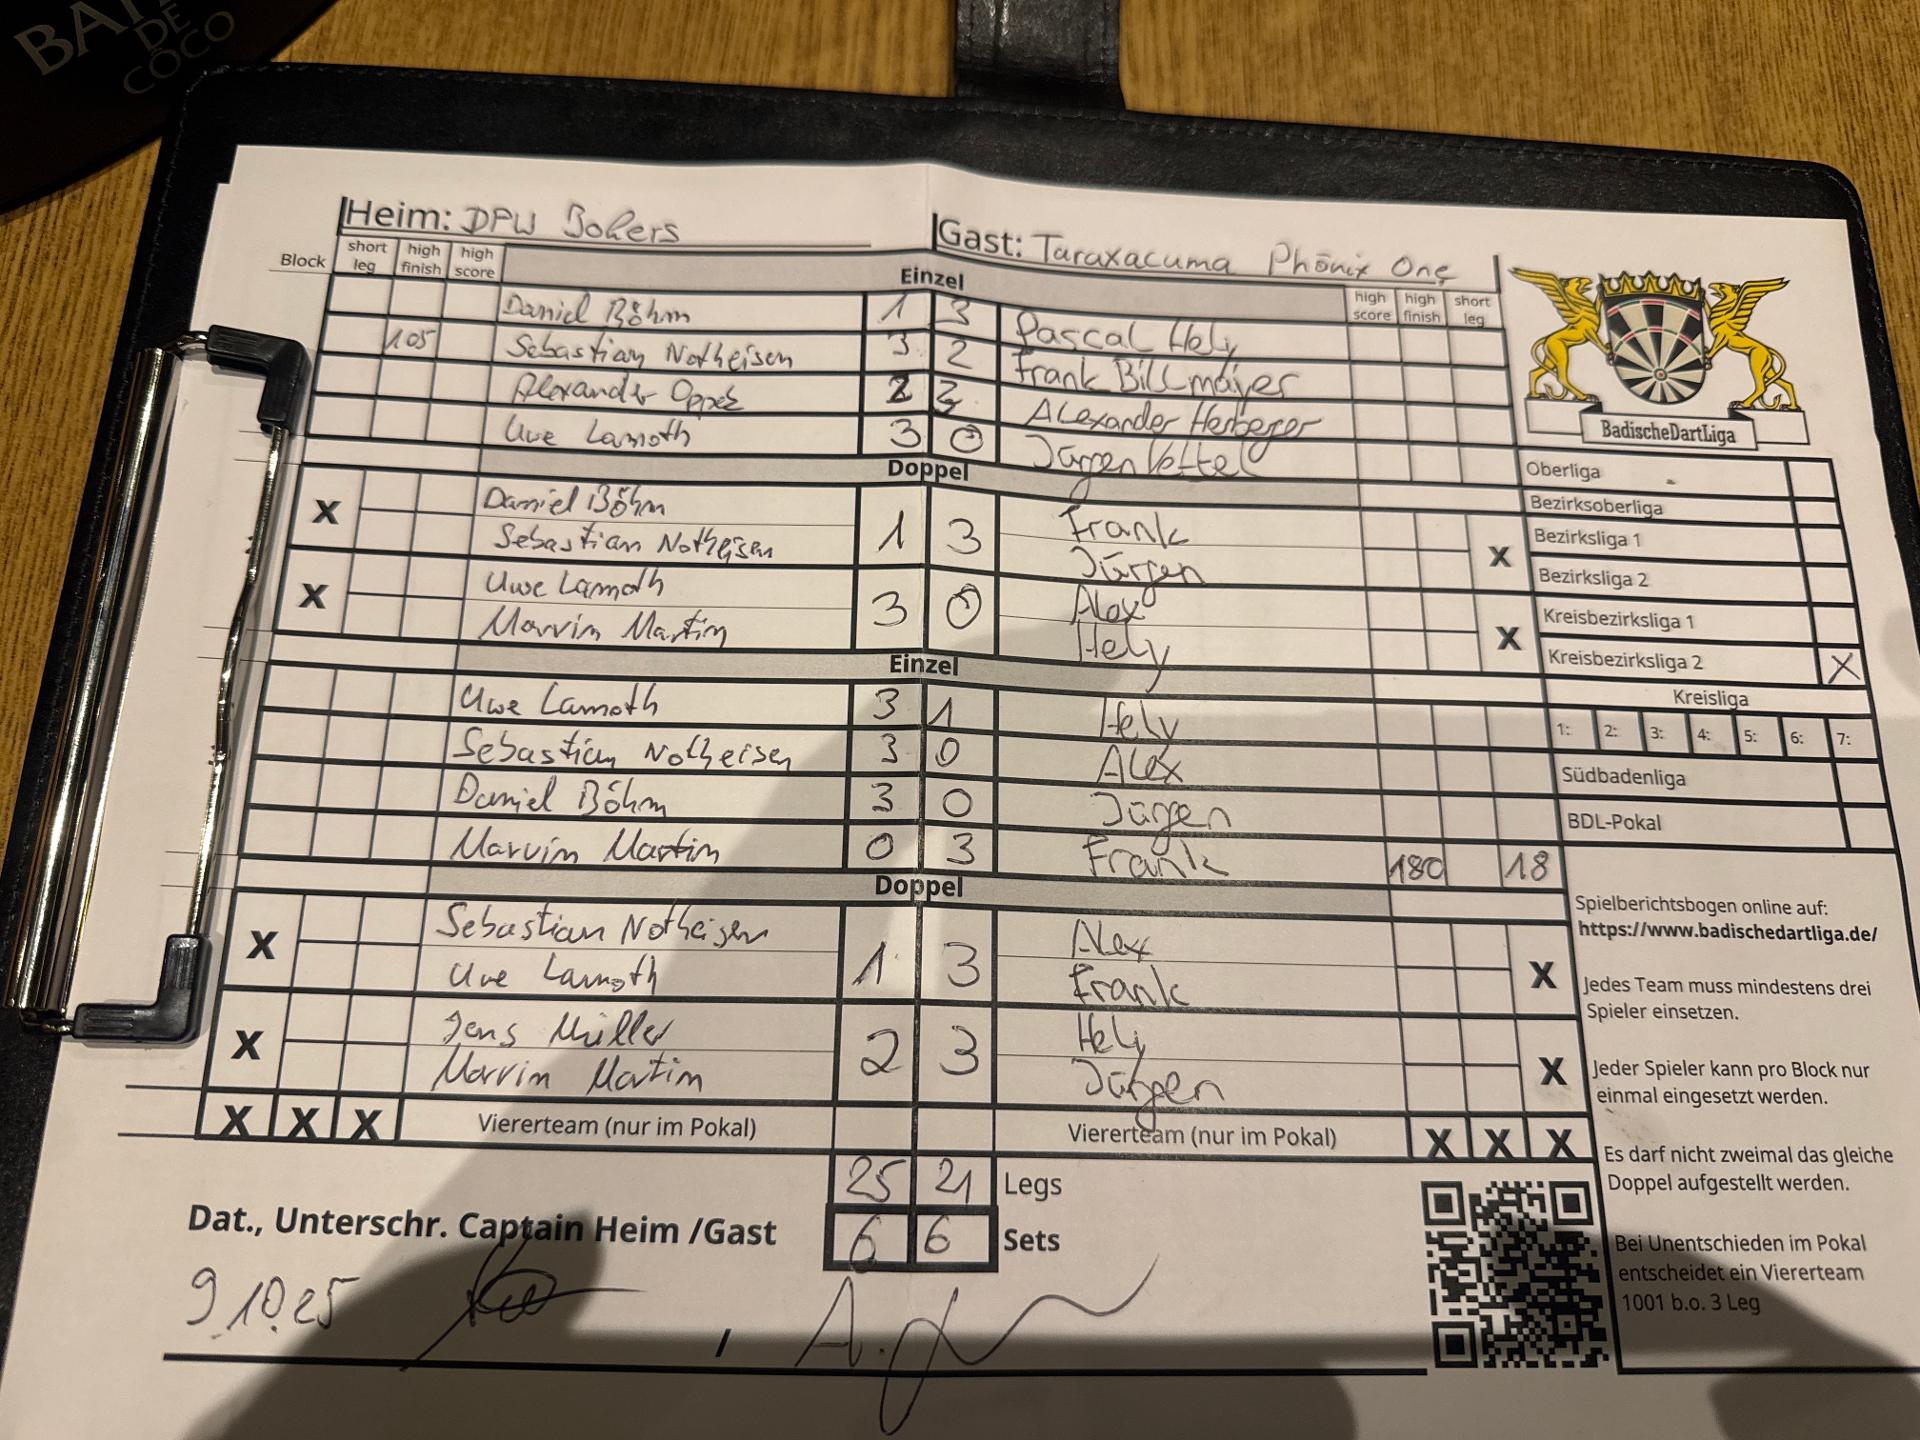 BA
DE
COCO
Heim: DPW Bokers
Gast: Taraxacuma Phönix One
Block short leg high finish high score
Einzel
high score high finish short leg
Daniel Böhm 1 3 Pascal Hely
105 Sebastian Notheisen 3 2 Frank Billmaier
Alexander Oppelt 2 3 Alexander Herberger
Uwe Lamoth 3 0 Jürgen Vettel
Doppel
X Daniel Böhm 1 3 Frank X
Sebastian Notheisen Jürgen
X Uwe Lamoth 3 0 Alex X
Marvin Martin Hely
Einzel
Uwe Lamoth 3 1 Hely
Sebastian Notheisen 3 0 Alex
Daniel Böhm 3 0 Jürgen
Marvin Martin 0 3 Frank 180 18
Doppel
X Sebastian Notheisen 1 3 Alex X
Uwe Lamoth Frank
X Jens Müller 2 3 Hely X
Marvin Martin Jürgen
X X X Viererteam (nur im Pokal) Viererteam (nur im Pokal) X X X
25 21 Legs
Dat., Unterschr. Captain Heim /Gast
6 6 Sets
9.10.25
/
BadischeDartLiga
Oberliga
Bezirksoberliga
Bezirksliga 1
Bezirksliga 2
Kreisbezirksliga 1
Kreisbezirksliga 2 X
Kreisliga
1: 2: 3: 4: 5: 6: 7:
Südbadenliga
BDL-Pokal
Spielberichtsbogen online auf:
https://www.badischedartliga.de/
Jedes Team muss mindestens drei
Spieler einsetzen.
Jeder Spieler kann pro Block nur
einmal eingesetzt werden.
Es darf nicht zweimal das gleiche
Doppel aufgestellt werden.
Bei Unentschieden im Pokal
entscheidet ein Viererteam
1001 b.o. 3 Leg